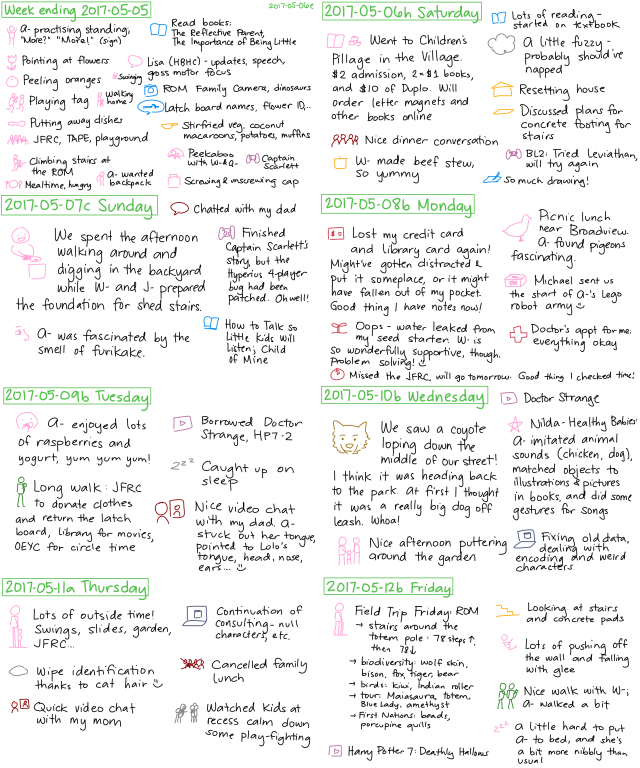 Week ending 2017-05-05
2017-05-06e
A- practising standing,
"More?" "More!" (sign)
Pointing at flowers
Peeling oranges
Swinging
Playing tag
Walking home?
Putting away dishes
JFRC, TAPE, playground
Climbing stairs at the ROM
Mealtime, hungry
A- wanted backpack
Read books:
The Reflective Parent,
The Importance of Being Little
Lisa (HBHC) - updates, speech,
gross motor focus
ROM Family Camera, dinosaurs
Latch board names, flower ID...
Stirfried veg, coconut
macaroons, potatoes, muffins
Peekaboo
with W- & Q-
Captain
Scarlett
Screwing & unscrewing cap
2017-05-06h Saturday
Went to Children's
Pillage in the Village.
$2 admission, 2×$1 books,
and $10 of Duplo. Will
order letter magnets and
other books online
Nice dinner conversation
W- made beef stew,
so yummy
Lots of reading -
started on textbook
A little fuzzy -
probably should've
napped
Resetting house
Discussed plans for
concrete footing for
stairs
BL2: Tried Leviathan,
will try again
So much drawing!
2017-05-07c Sunday
We spent the afternoon
walking around and
digging in the backyard
while W- and J- prepared
the foundation for shed stairs.
A- was fascinated by the
smell of furikake.
Chatted with my dad
Finished
Captain Scarlett's
story, but the
Hyperius 4-player
bug had been
patched. Oh well!
How to Talk so
Little Kids Will
Listen; Child
of Mine
2017-05-08b Monday
Lost my credit card
and library card again!
Might've gotten distracted &
put it someplace, or it might
have fallen out of my pocket.
Good thing I have notes now!
Oops - water leaked from
my seed starter. W- is
so wonderfully supportive, though.
Problem solving!
Missed the JFRC, will go tomorrow. Good thing I checked time!
Picnic lunch
near Broadview.
A- found pigeons
fascinating.
Michael sent us
the start of A-'s Lego
robot army
Doctor's appt for me:
everything okay
2017-05-09b Tuesday
A- enjoyed lots
of raspberries and
yogurt, yum yum yum!
Long walk: JFRC
to donate clothes
and return the latch
board, library for movies,
OEYC for circle time
Borrowed Doctor
Strange, HP7-2
zzz
Caught up on
sleep
Nice video chat
with my dad. A-
stuck out her tongue,
pointed to Lolo's
tongue, head, nose,
ears...
2017-05-10b Wednesday
We saw a coyote
loping down the
middle of our street!
I think it was heading back
to the park. At first I thought
it was a really big dog off
leash. Whoa!
Nice afternoon puttering
around the garden
Doctor Strange
Nilda - Healthy Babies
A- imitated animal
sounds (chicken, dog),
matched objects to
illustrations & pictures
in books, and did some
gestures for songs
Fixing old data,
dealing with
encoding and weird
characters
2017-05-11a Thursday
Lots of outside time!
Swings, slides, garden,
JFRC...
Wipe identification
thanks to cat hair
Quick video chat
with my mom
Continuation of
consulting - null
characters, etc.
Cancelled family
lunch
Watched kids at
recess calm down
some play-fighting
2017-05-12b Friday
Field Trip Friday: ROM
→ stairs around the
totem pole: 78 steps ↑,
then 78↓
→ biodiversity: wolf skin,
bison, fox, tiger, bear
→ birds: kiwi, Indian roller
→ tour: Maiasaura, totem,
Blue Lady, amethyst
→ First Nations: beads,
porcupine quills
Harry Potter 7: Deathly Hallows
Looking at stairs
and concrete pads
Lots of pushing off
the wall and falling
with glee
Nice walk with W-;
A- walked a bit
zzz
A little hard to put
A- to bed, and she's
a bit more nibbly than
usual